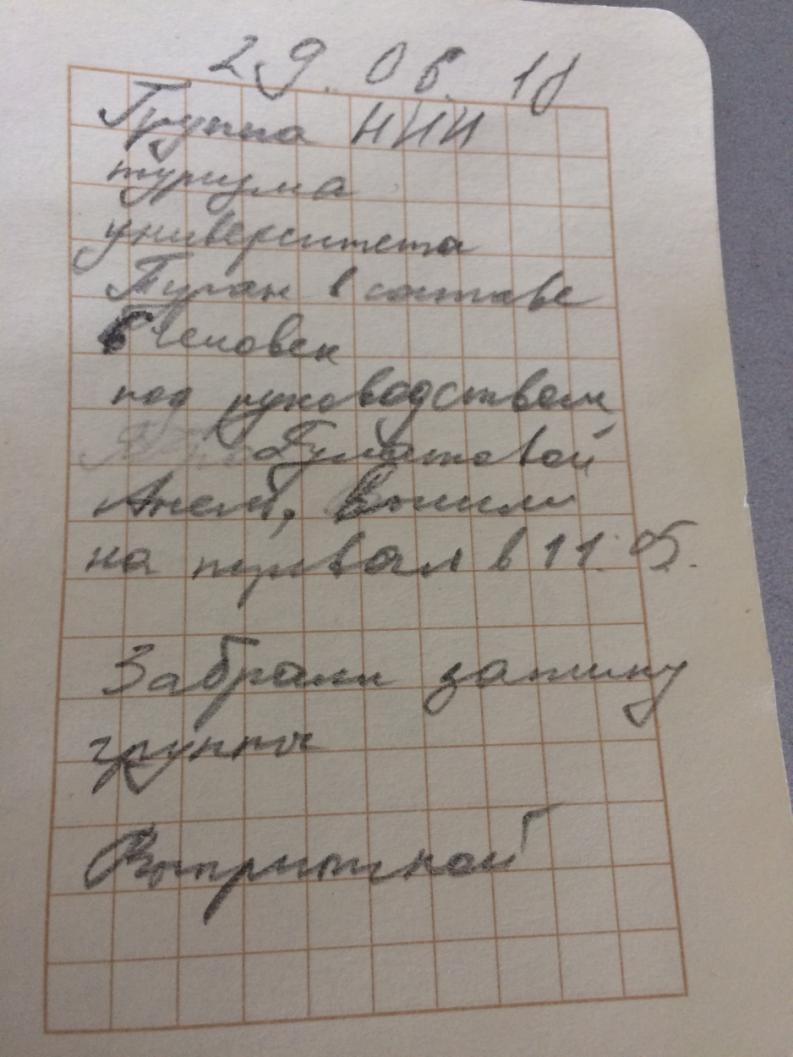 29.06.18
Группа НИИ
туризма
университета
Туран в составе
6 человек
под руководством
Булатовой
Анель, вышли
на перевал в 11.05.
Забрали записку
группы